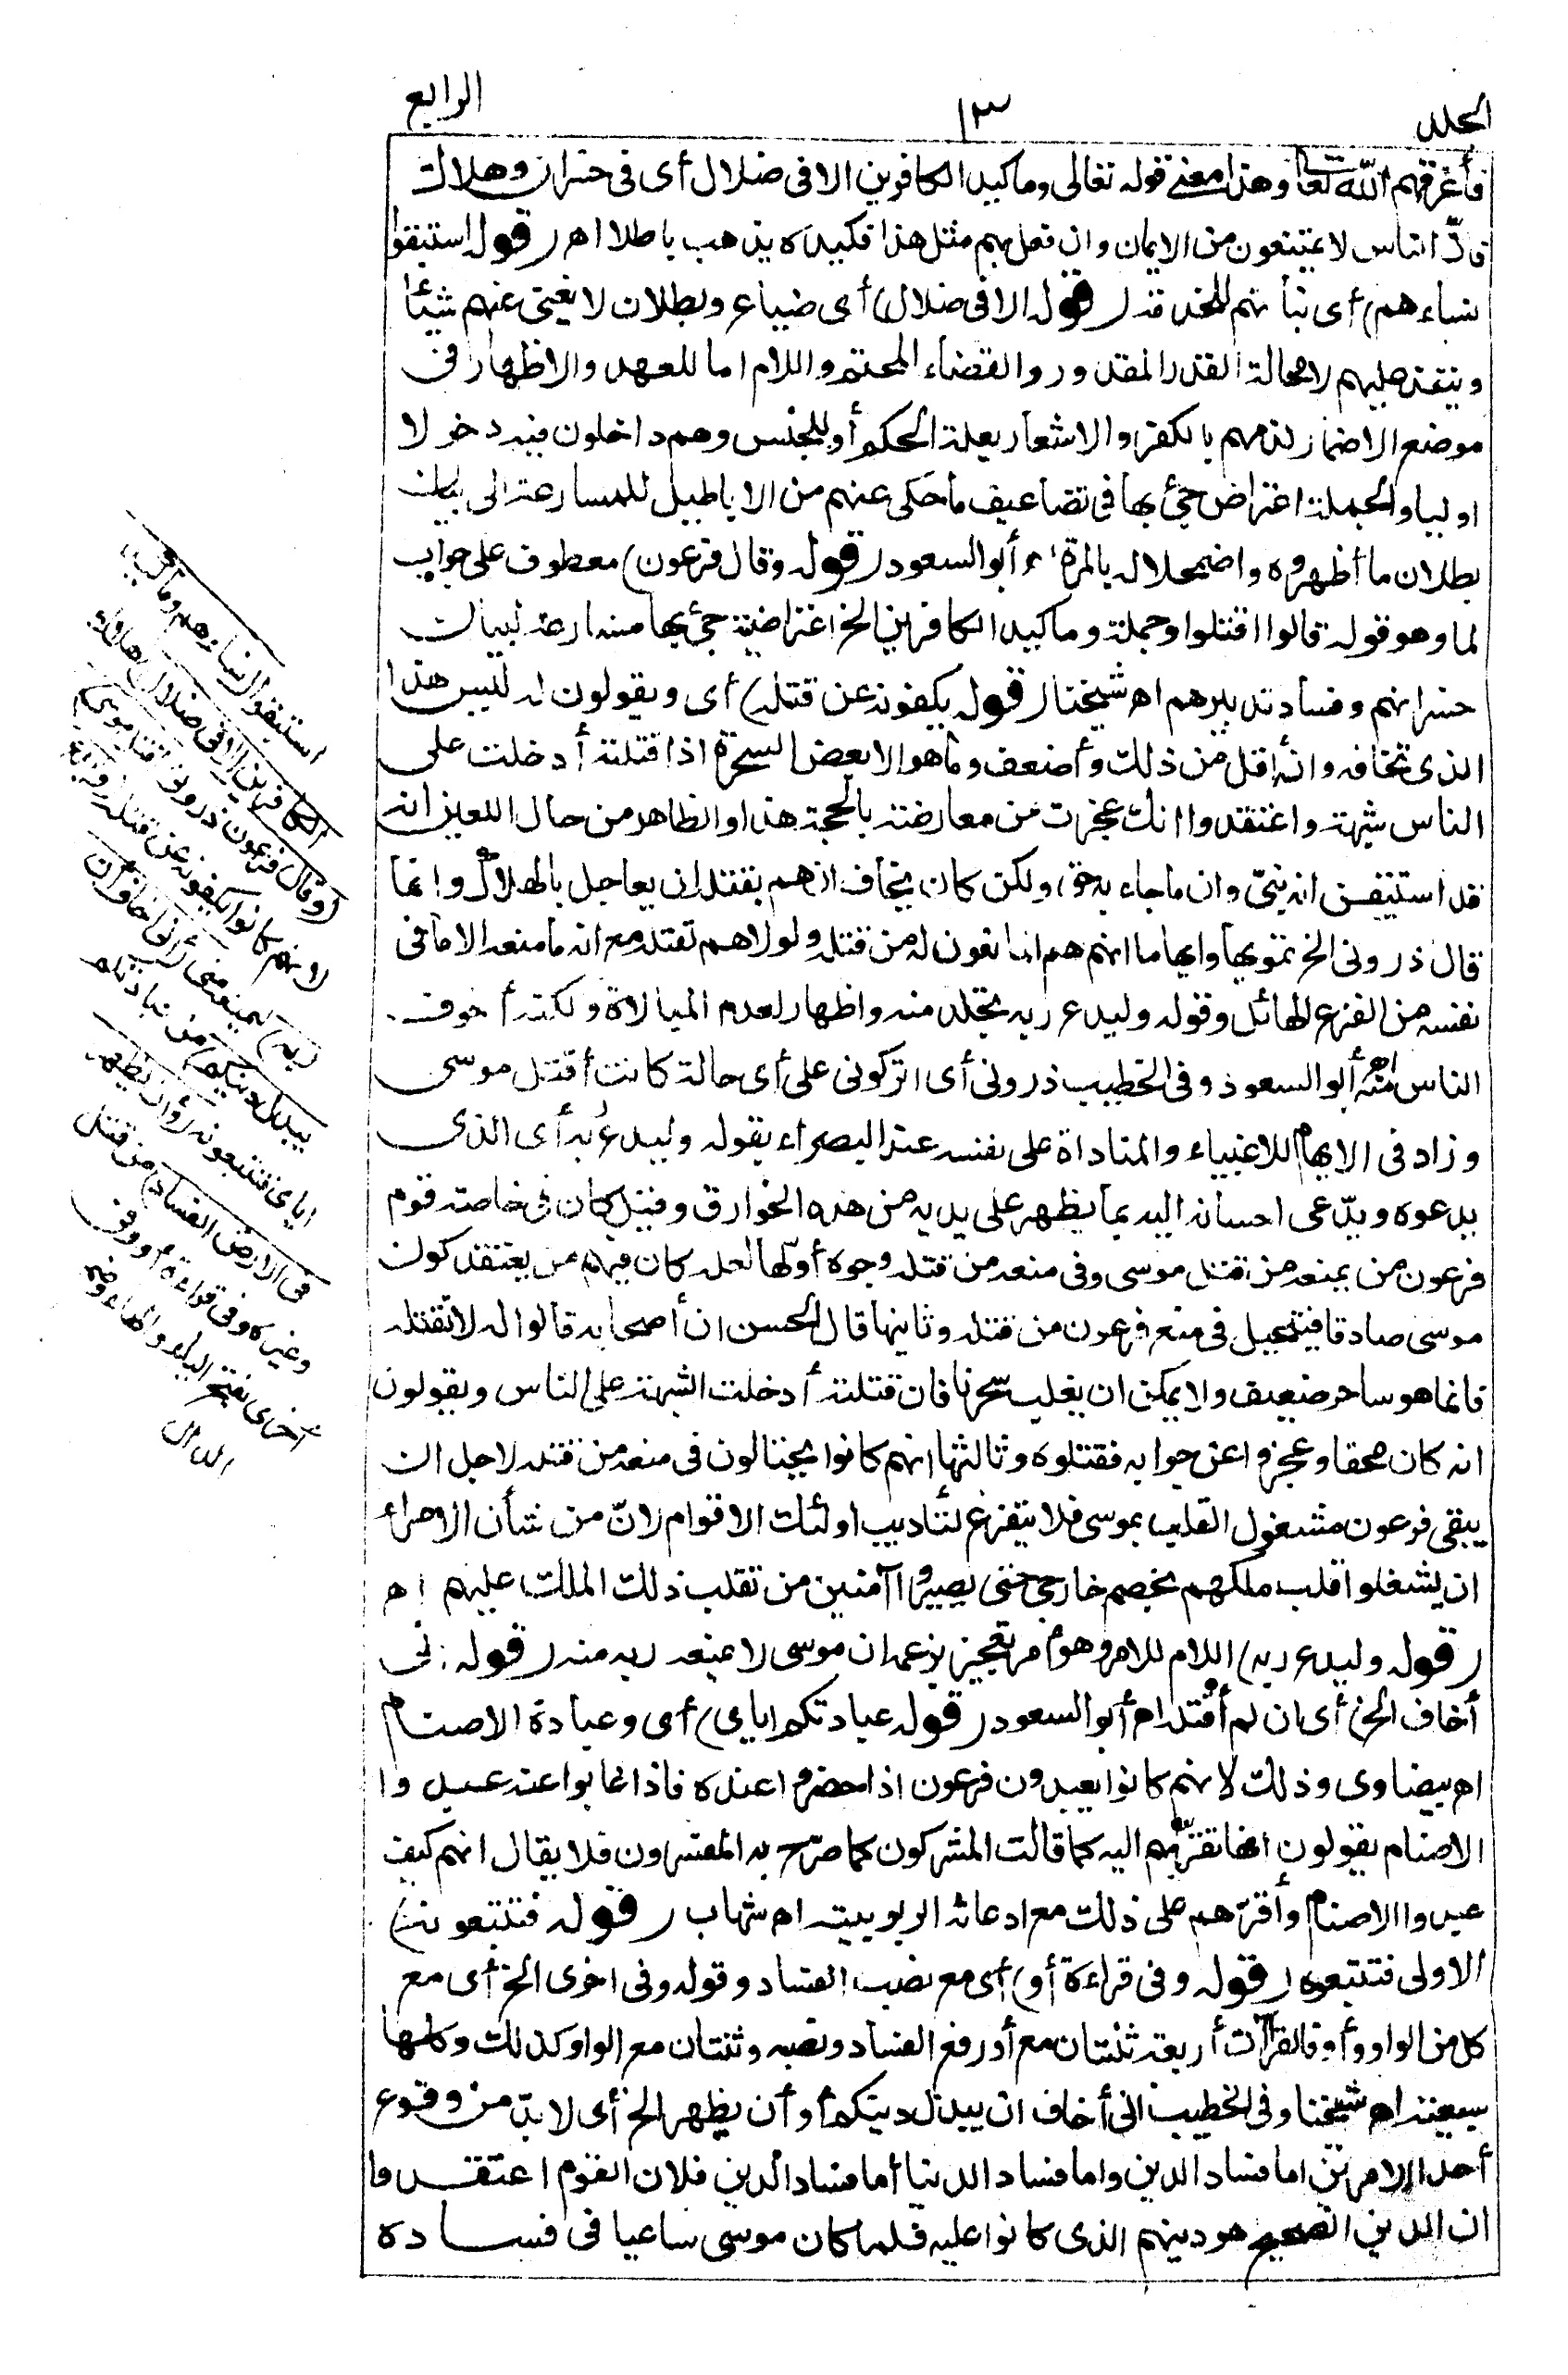 الجلد ١٣ الرابع
فأغرقهم الله تعالى وهذا معنى قوله تعالى وما كيد الكافرين الا فى ضلال أى فى خسران وهلاك
فانّ الناس لا يمتنعون من الايمان وان فعل بهم مثل هذا فكيده يذهب باطلا اهـ (قوله استبقوا
نساءهم) أى بناتهم للخدمة (قوله الا فى ضلال) أى ضياع وبطلان لا يغنى عنهم شيئا
وينفذ عليهم لا محالة القدر المقدور والقضاء المحتم واللام اما للعهد والاظهار فى
موضع الاضمار لذمهم بالكفر والاشعار بعلة الحكم أو للجنس وهم داخلون فيه دخولا
اوليا والجملة اعتراض جئ بها فى تضاعيف ما حكى عنهم من الاباطيل للمسارعة الى بيان
بطلان ما أظهروه واضمحلاله بالمرة اهـ أبو السعود (قوله وقال فرعون) معطوف على جواب
لما وهو قوله قالوا اقتلوا وجملة وما كيد الكافرين الخ اعتراضية جئ بها مسارعة لبيان
خسرانهم وفساد تدبيرهم اهـ شيخنا (قوله يكفونه عن قتله) أى ويقولون له ليس هذا
الذى تخافه وانه أقل من ذلك وأضعف وما هو الا بعض السحرة اذا قتلته أدخلت على
الناس شبهة واعتقدوا انك عجزت من معارضته بالحجة هذا والظاهر من حال اللعين انه
قد استيقن انه نبىّ وان ما جاء به حق ولكن كان يخاف ان هم بقتله ان يعاجل بالهلاك وانما
قال ذرونى الخ تمويها وايهاما انهم هم المانعون له من قتله ولولاهم لقتله مع انه ما منعه الا ما فى
نفسه من الفزع الهائل وقوله وليدع ربه تجلد منه واظهار لعدم المبالاة ولكنه أخوف
الناس منه اهـ أبو السعود وفى الخطيب ذرونى أى اتركونى على أى حالة كانت أقتل موسى
وزاد فى الابهام للاغبياء والمناداة على نفسه عند البصراء بقوله وليدع ربه أى الذى
يدعوه ويدّعى احسانه اليه بما يظهر على يديه من هذه الخوارق وقيل كان فى خاصة قوم
فرعون من يمنعه من قتل موسى وفى منعه من قتله وجوه أوّلها لعله كان فيهم من يعتقد كون
موسى صادقا فيتحيل فى منع فرعون من قتله وثانيها قال الحسن ان أصحابه قالوا له لا تقتله
فانما هو ساحر ضعيف ولا يمكن ان يغلب سحرنا فان قتلته أدخلت الشبهة على الناس ويقولون
انه كان محقا وعجزوا عن جوابه فقتلوه وثالثها انهم كانوا يحتالون فى منعه من قتله لاجل ان
يبقى فرعون مشغول القلب بموسى فلا يتفرغ لتأديب اولئك الاقوام لانّ من شأن الامراء
ان يشغلوا قلب ملكهم بخصم خارجى حتى يصيروا آمنين من تقلب ذلك الملك عليهم اهـ
(قوله وليدع ربه) اللام للامر وهو أمر تعجيز بزعمه ان موسى لا يمنعه ربه منه (قوله انى
أخاف الخ) أى ان لم أقتله اهـ أبو السعود (قوله عبادتكم اياى) أى وعبادة الاصنام
اهـ بيضاوى وذلك لانهم كانوا يعبدون فرعون اذا حضروا عنده فاذا غابوا عنه عبدوا
الاصنام يقولون انها تقرّبهم اليه كما قالت المشركون كما صرّح به المفسرون فلا يقال انهم كيف
عبدوا الاصنام وأقرّهم على ذلك مع ادعائه الربوبية اهـ شهاب (قوله فتتبعونه)
الاولى فتتبعوه (قوله وفى قراءة أو) أى مع نصب الفساد وقوله وفى اخرى الخ أى مع
كل من الواو وأو فالقرآآت أربعة ثنتان مع أو رفع الفساد ونصبه وثنتان مع الواو كذلك وكلها
سبعية اهـ شيخنا وفى الخطيب انى أخاف ان يبدل دينكم أو أن يظهر الخ أى لا بدّ من وقوع
أحد الامرين اما فساد الدين واما فساد الدنيا أما فساد الدين فلان القوم اعتقدوا
ان الدين الصحيح هو دينهم الذى كانوا عليه فلما كان موسى ساعيا فى فساده
استبقوا نساءهم وما كيد
الكافرين الا فى ضلال) هلاك
(وقال فرعون ذرونى أقتل موسى)
لانهم كانوا يكفونه عن قتله (وليدع
ربه) ليمنعه منى (انى أخاف أن
يبدل دينكم) من عبادتكم
اياى فتتبعونه (وأن يظهر
فى الارض الفساد) من قتل
وغيره وفى قراءة أو وفى
أخرى بفتح الياء والهاء وضم
الدال